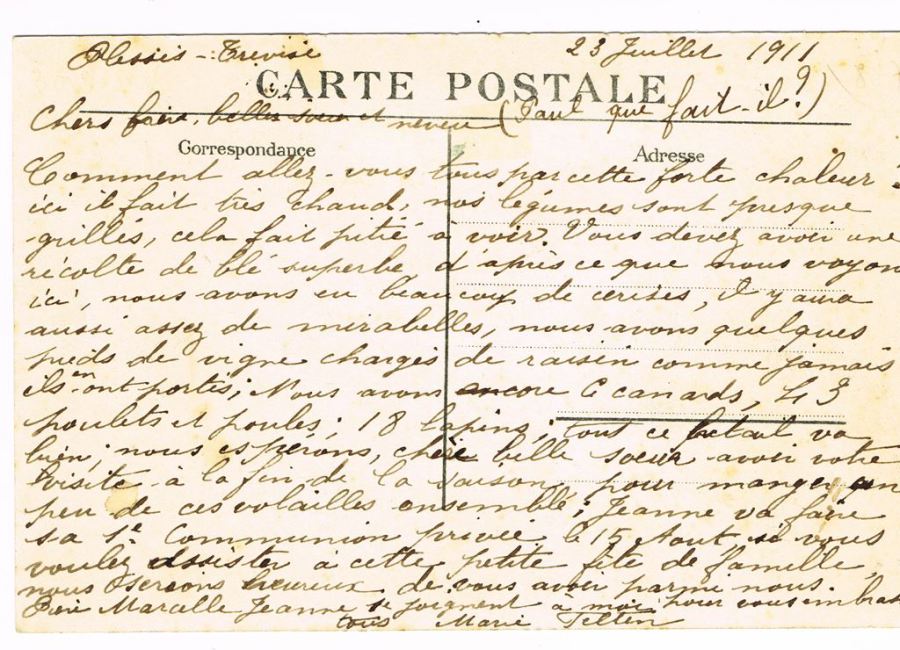 Plessis-Trevise 23 Juillet 1911
CARTE POSTALE
Chers frère, belle sœur et neveu (Paul que fait-il?)
Correspondance
Adresse
Comment allez-vous tous par cette forte chaleur ?
ici il fait très chaud, nos légumes sont presque
grillés, cela fait pitié à voir. Vous devez avoir une
récolte de blé superbe, d'après ce que nous voyons
ici, nous avons eu beaucoup de cerises, il y aura
aussi assez de mirabelles, nous avons quelques
pieds de vigne chargés de raisin comme jamais
ils en ont portés; Nous avons encore 6 canards, 43
poulets et poules; 18 lapins, tout ce bétail va
bien; nous espérons, chère belle sœur avoir votre
visite à la fin de la saison pour manger un
peu de ces volailles ensemble; Jeanne va faire
sa 1e Communion privée le 15 Aout si vous
voulez assister à cette petite fête de famille
nous serions heureux de vous avoir parmi nous.
Marcelle Jeanne se joignent à moi pour vous embrasser
tous Marie